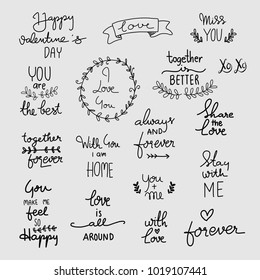 Happy
valentine's
DAY
love
Miss
YOU
together
is
BETTER
Xo Xo
YOU
are
the best
I
Love
You
always
AND
forever
Share
the
love
together
forever
With You
I am
HOME
You
+
me
Stay
with
ME
You
MAKE ME
feel
SO
Happy
love
is
all
AROUND
with
Love
forever
shutterstock.com · 1019107441